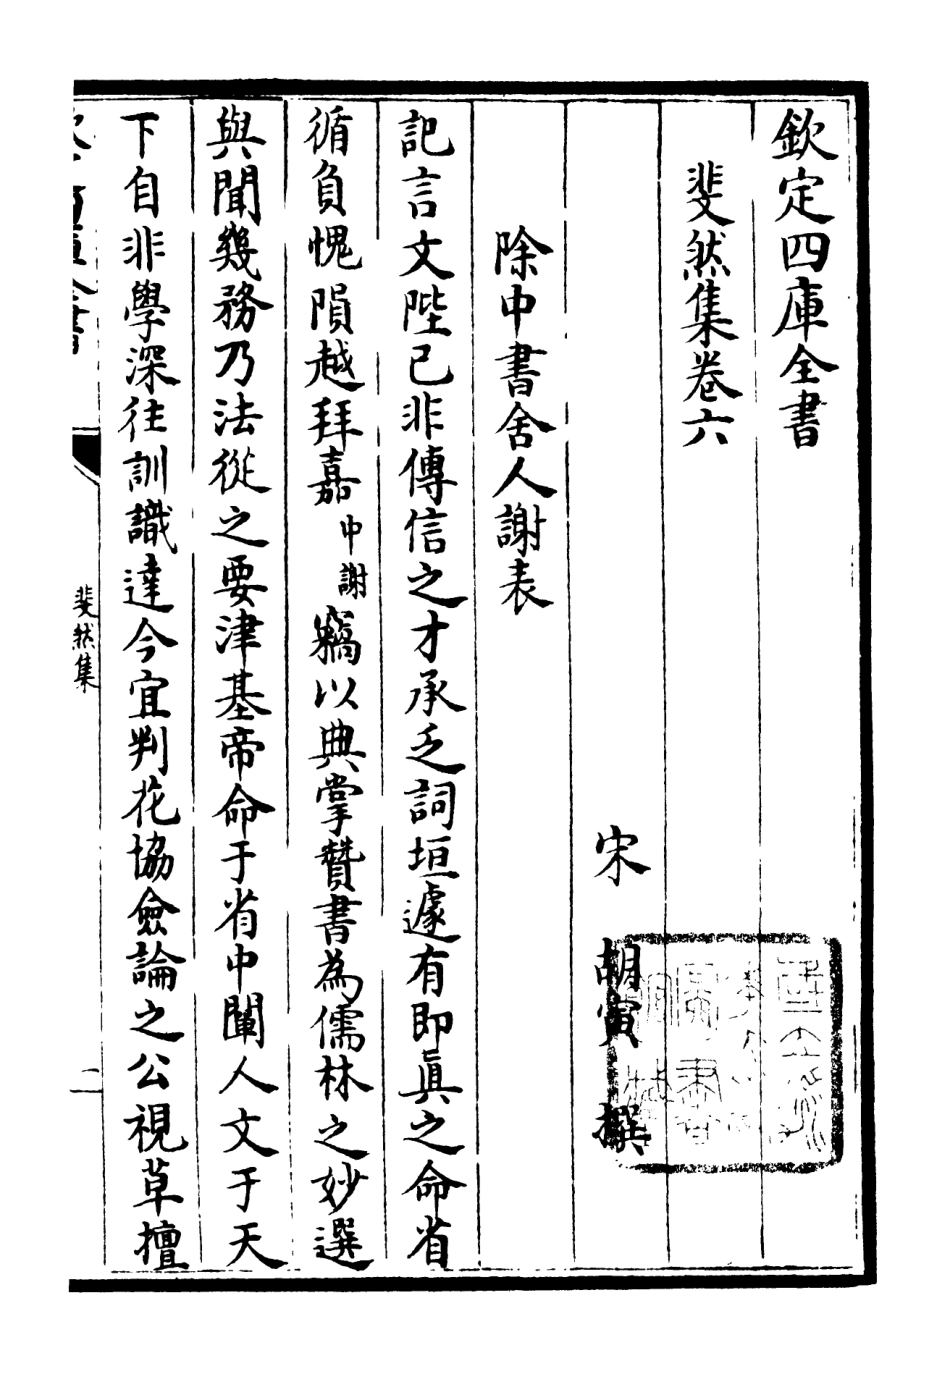 欽定四庫全書
斐然集卷六
宋 胡寅 撰
除中書舍人謝表
記言文陛已非傳信之才承乏詞垣遽有即眞之命省
循負愧隕越拜嘉中謝竊以典掌贊書為儒林之妙選
與聞幾務乃法從之要津基帝命于省中闡人文于天
下自非學深往訓識達今宜判花協僉論之公視草擅
斐然集